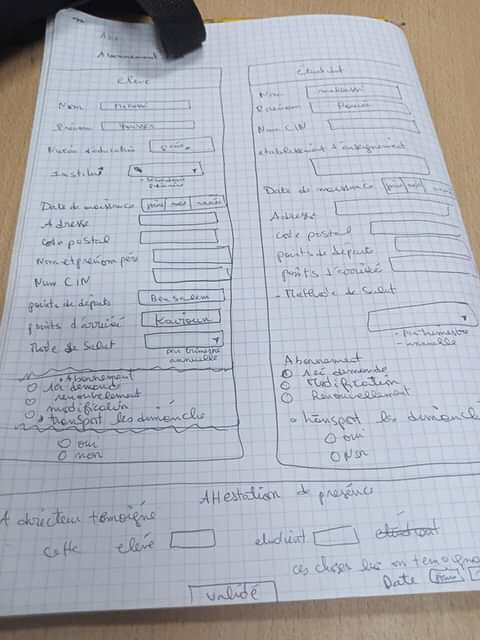 Abonnement
Elève
Nom
Prenom Youssef
Institut
Date de naissance jour mois année
Adresse
Code postal
Nom et prenom père
Num CIN
points de départs Bensalem
points d'arrivéé
Mode de Salut
annuelle
• Abonnement
1éi demande
renouvelement
modification
• transport les dimanche
oui
non
Etudiant
Nom
Prenom
Num CIN
etablissement d'enseignement
Date de naissance jour mois année
Adresse
Code postal
points de départs
points d'arrivéé
- Methode de Salut
- annuelle
Abonnement
1éi demande
Modification
Renouvellement
• transport les dimanche
oui
Non
Attestation de présence
A directeur témoigné
Cette elévé etudiant etudiant
Date
validé